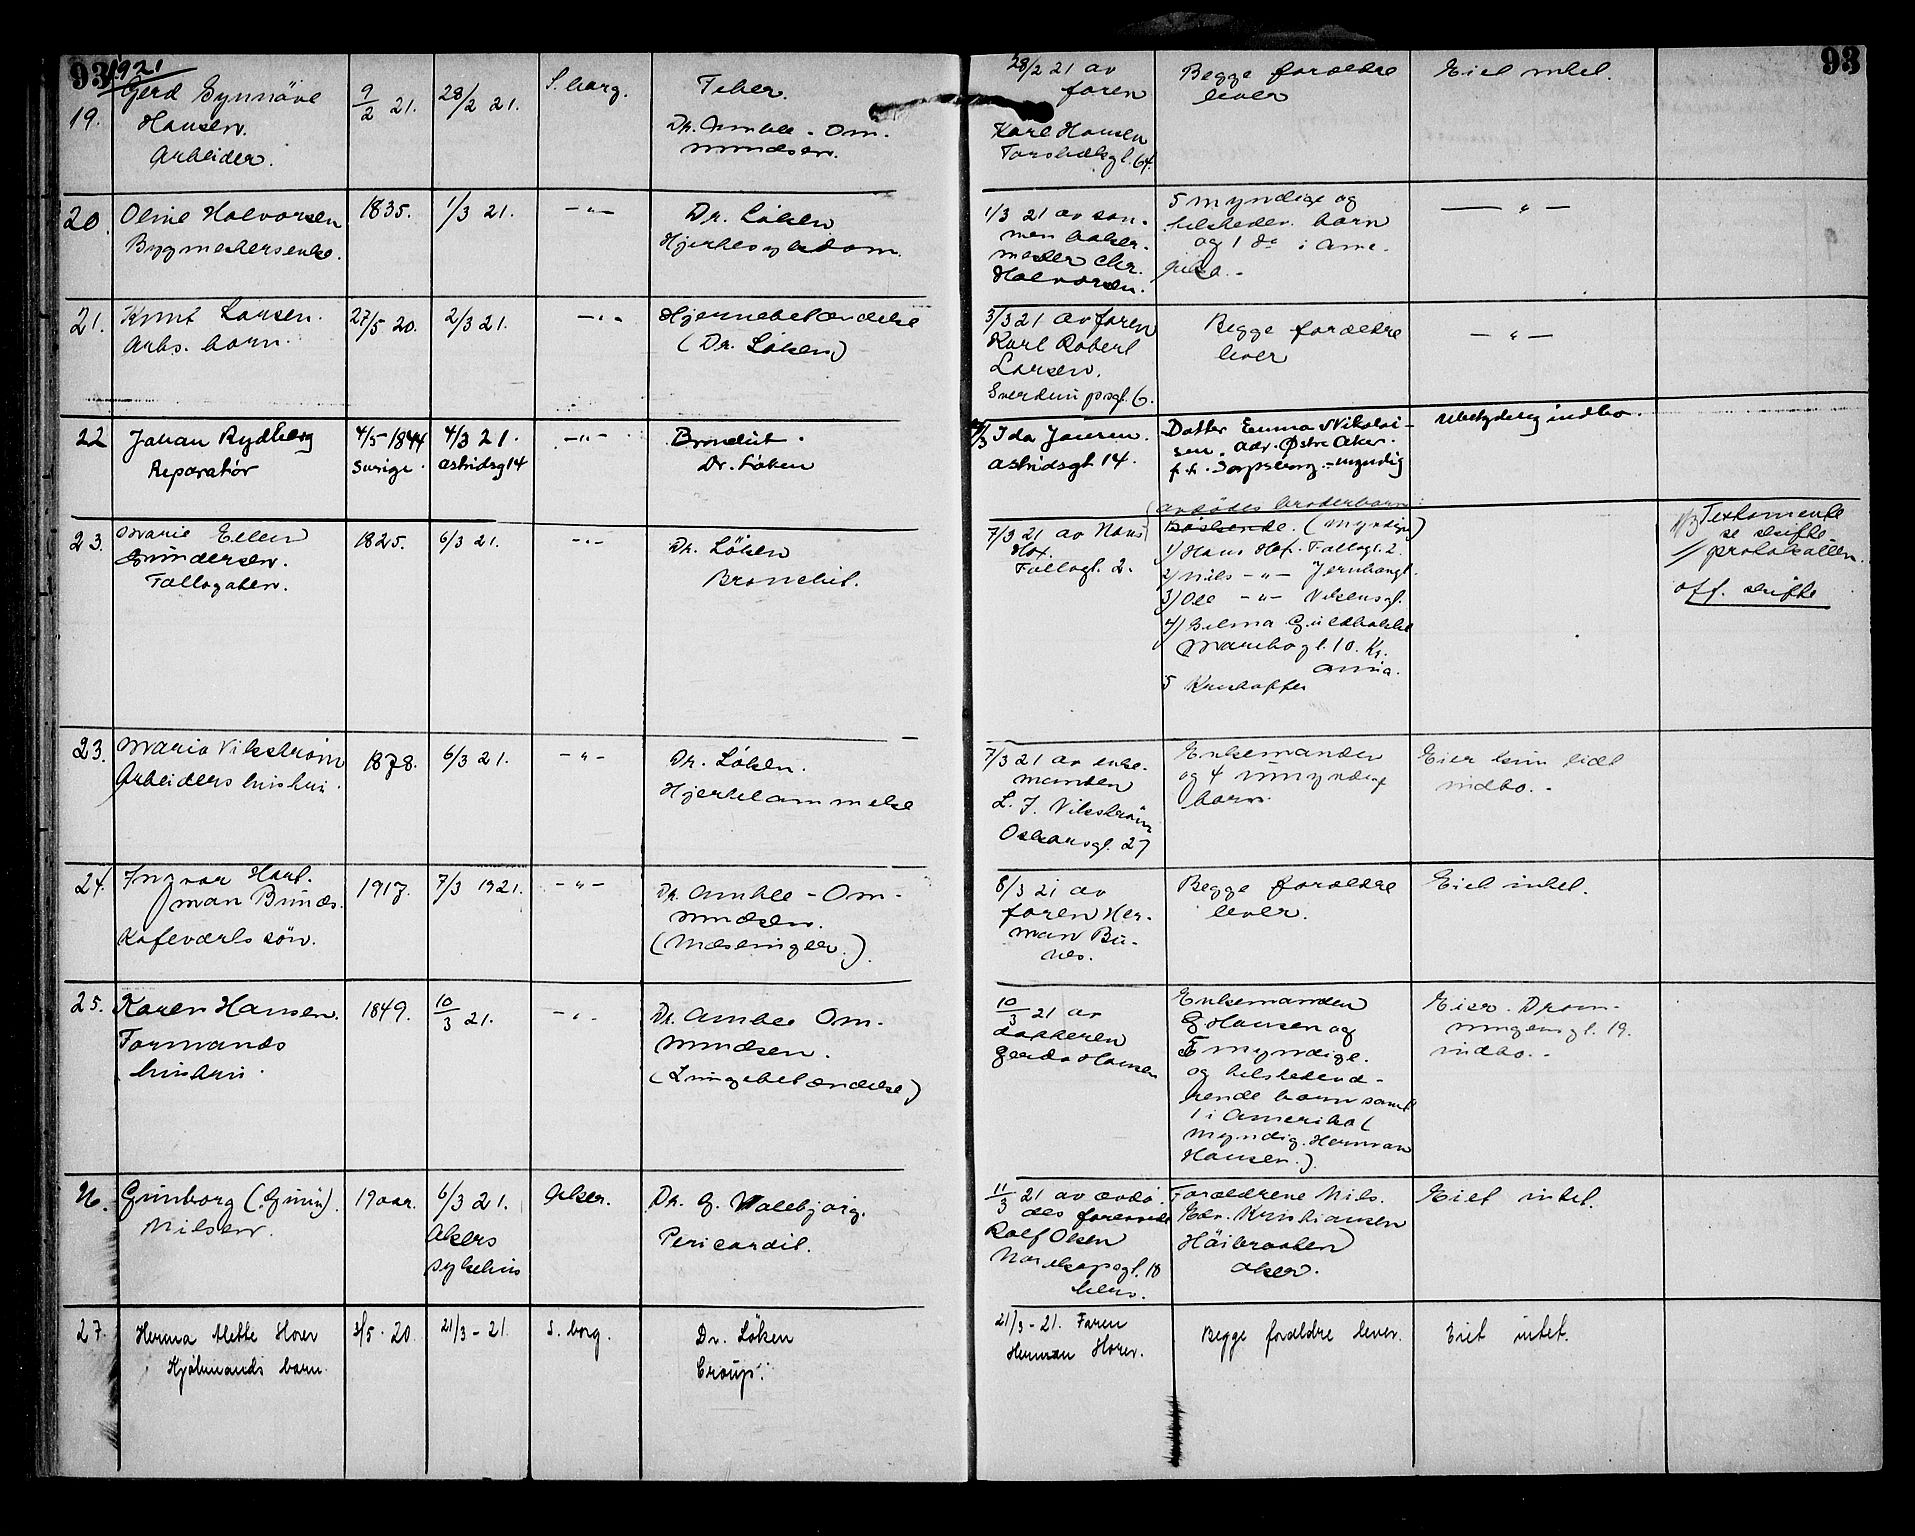 93
1921
19.
Gerd Synnöve
Hansen.
Arbeider.
9/2 21.
28/2 21.
S. borg.
Feber.
Dr. Amble-Om-
mundsen.
28/2 21 av
faren
Karl Hansen
gt. 64.
Begge forældre
lever
Eiet intet.
93
20.
Oline Halvorsen
Bygmestersenke.
1835.
1/3 21.
— " —
Dr. Löken
Hjertesykdom.
1/3 21 av søn-
nen baker-
mester Chr.
Halvorsen.
5 myndige og
tilstedev. barn
og 1 do i Ame-
rika.-
— " —
21.
Knut Larsen.
Arbs. barn.
27/5 20.
2/3 21.
— " —
Hjernebetændelse
(Dr. Löken)
3/3 21 av faren
Karl Robert
Larsen.
Sverdrupsgt. 6.
Begge forældre
lever
— " —
22
Johan Rydberg
Reparatør
4/5-1844
Sverige.
4/3 21.
Astridsg 14
— " —
Bronchit.
Dr. Løken
Ida Jansen.
Astridsgt 14.
Datter Emma Nikolai-
sen. Adr. Østre Aker.
f.t. Sarpsborg.-myndig
Ubetydelig indbo.
23.
Marie Ellen
Gundersen.
Fallogaten.
1825.
6/3 21.
— " —
Dr. Löken
Bronchit.
7/3 21 av Hans
Hof.
Fallogt. 2.
avdödes broderbarn
(myndige)
1/ Hans Hof. Fallogt. 2.
2/ Nils — " — Jernbanegt.
3) Ole — " —
4/ Hilma
gt. 10. Kr.
ania.
5 Kristoffer
Testamente
se skifte-
protokollen.
off. skifte
23.
Maria Vikström
Arbeiders hustru.
1878.
6/3 21.
— " —
Dr. Löken.
Hjertelammelse
7/3 21 av enke-
manden
L. J. Vikström
Oskarsgt. 27
Enkemanden
og 4 umyndige
barn.
Eier kun lidt
indbo.-
24.
Ingvar Hart-
man Bunæs.
Kafeværts sön.
1917.
7/3 1921.
— " —
Dr. Amble-Om-
mundsen.
(Mæslinger.)
8/3 21 av
faren Her-
man Bu-
nes.
Begge forældre
lever.
Eiet intet.
25.
Karen Hansen.
Formands
hustru.
1849.
10/3 21.
— " —
Dr. Amble Om-
mundsen.
(Lungebetændelse)
10/3 21 av
datteren
Gerda Hansen
Enkemanden
G Hansen og
5 myndige.
og tilstedevæ-
rende barn samt
1 i Amerika (
myndig. Herman
Hansen.)
Eier. Dron-
ningensgt. 19.
indbo.-
26.
Gunborg (Gunn).
Nilsen.
19 aar.
6/3 21.
Akers
sykehus
Aker.
Dr. G.
Pericardit.
11/3 21 av avdö-
des forlovede
Rolf Olsen
gt. 18
hers.
Forældrene Nils.
Edv. Kristiansen
Höibraaten
Aker.
Eiet intet.
27.
Herma Mette Horer
Kjöbmands barn.
3/5-20.
21/3-21.
S. borg.
Dr. Löken
Croup.
21/3-21. Faren
Herman Horer.
Begge forældre lever.
Eiet intet.